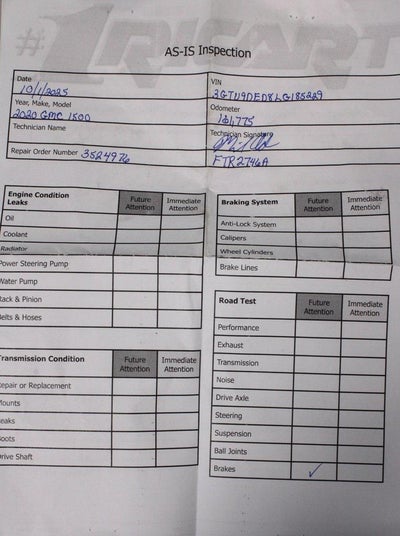 #1 RICART
AS-IS Inspection
Date
10/1/2025
VIN
3GTU9DED8LG185229
Year, Make, Model
2020 GMC 1500
Odometer
131,775
Technician Name
Technician Signature
Repair Order Number 3524976
FTR2746A
Engine Condition
Leaks
Future Attention
Immediate Attention
Oil
Coolant
Radiator
Power Steering Pump
Water Pump
Rack & Pinion
Belts & Hoses
Braking System
Future Attention
Immediate Attention
Anti-Lock System
Calipers
Wheel Cylinders
Brake Lines
Transmission Condition
Future Attention
Immediate Attention
Repair or Replacement
Mounts
Leaks
Boots
Drive Shaft
Road Test
Future Attention
Immediate Attention
Performance
Exhaust
Transmission
Noise
Drive Axle
Steering
Suspension
Ball Joints
Brakes ✓